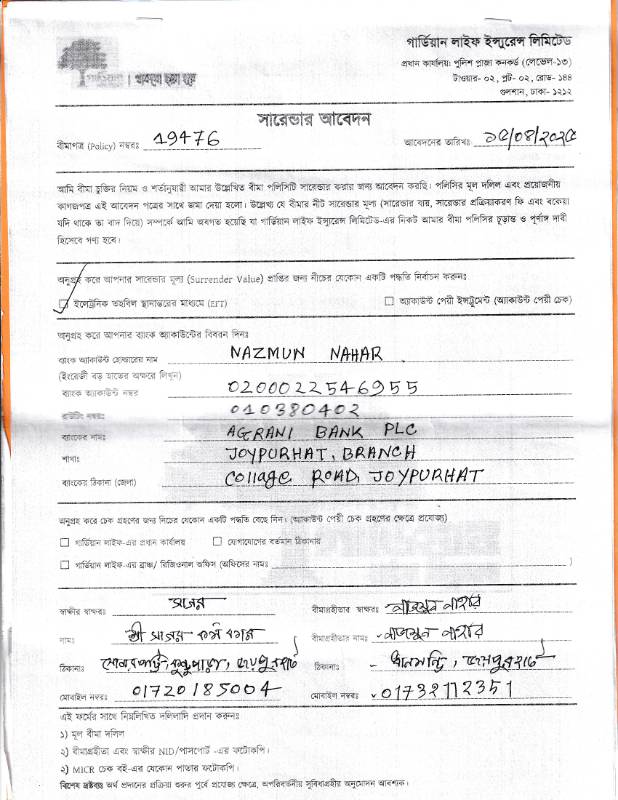 গার্ডিয়ান লাইফ ইন্স্যুরেন্স লিমিটেড
প্রধান কার্যালয়: পুলিশ প্লাজা কনকর্ড (লেভেল-১৩)
টাওয়ার- ০২, প্লট- ০২, রোড- ১৪৪
গুলশান, ঢাকা- ১২১২
সারেন্ডার আবেদন
বীমাপত্র (Policy) নম্বরঃ 19476 আবেদনের তারিখঃ ১৫/০৪/২০২৫
আমি বীমা চুক্তির নিয়ম ও শর্তানুযায়ী আমার উল্লেখিত বীমা পলিসিটি সারেন্ডার করার জন্য আবেদন করছি। পলিসির মূল দলিল এবং প্রয়োজনীয়
কাগজপত্র এই আবেদন পত্রের সাথে জমা দেয়া হলো। উল্লেখ্য যে বীমার নীট সারেন্ডার মূল্য (সারেন্ডার ব্যয়, সারেন্ডার প্রক্রিয়াকরণ ফি এবং বকেয়া
যদি থাকে তা বাদ দিয়ে) সম্পর্কে আমি অবগত হয়েছি যা গার্ডিয়ান লাইফ ইন্স্যুরেন্স লিমিটেড-এর নিকট আমার বীমা পলিসির চূড়ান্ত ও পূর্ণাঙ্গ দাবী
হিসেবে গণ্য হবে।
অনুগ্রহ করে আপনার সারেন্ডার মূল্য (Surrender Value) প্রাপ্তির জন্য নীচের যেকোন একটি পদ্ধতি নির্বাচন করুনঃ
ইলেট্রনিক তহবিল স্থানান্তরের মাধ্যমে (EFT) অ্যাকাউন্ট পেয়ী ইন্সট্রুমেন্ট (অ্যাকাউন্ট পেয়ী চেক)
অনুগ্রহ করে আপনার ব্যাংক অ্যাকাউন্টের বিবরন দিনঃ
ব্যাংক অ্যাকাউন্ট হোল্ডারের নাম NAZMUN NAHAR
(ইংরেজী বড় হাতের অক্ষরে লিখুন)
ব্যাংক অ্যাকাউন্ট নম্বর 0200022546955
রাউটিং নম্বরঃ 010380402
ব্যাংকের নামঃ AGRANI BANK PLC
শাখাঃ JOYPURHAT, BRANCH
ব্যাংকের ঠিকানা (জেলা) Collage ROAD, JOYPURHAT
অনুগ্রহ করে চেক গ্রহণের জন্য নিচের যেকোন একটি পদ্ধতি বেছে নিন। (অ্যাকাউন্ট পেয়ী চেক গ্রহণের ক্ষেত্রে প্রযোজ্য)
গার্ডিয়ান লাইফ-এর প্রধান কার্যালয় যোগাযোগের বর্তমান ঠিকানায়
গার্ডিয়ান লাইফ-এর ব্রাঞ্চ/ রিজিওনাল অফিস (অফিসের নামঃ )
স্বাক্ষীর স্বাক্ষরঃ বীমাগ্রহীতার স্বাক্ষরঃ নাজমুন নাহার
নামঃ শ্রী বীমাগ্রহীতার নামঃ নাজমুন নাহার
ঠিকানাঃ জয়পুরহাট ঠিকানাঃ জয়পুরহাট
মোবাইল নম্বরঃ 01720185004 মোবাইল নম্বরঃ 01732112351
এই ফর্মের সাথে নিম্নলিখিত দলিলাদি প্রদান করুনঃ
১) মূল বীমা দলিল
২) বীমাগ্রহীতা এবং স্বাক্ষীর NID/পাসপোর্ট -এর ফটোকপি।
২) MICR চেক বই-এর যেকোন পাতার ফটোকপি।
বিশেষ দ্রষ্টব্যঃ অর্থ প্রদানের প্রক্রিয়া শুরুর পূর্বে প্রযোজ্য ক্ষেত্রে, অপরিবর্তনীয় সুবিধাগ্রহীর অনুমোদন আবশ্যক।